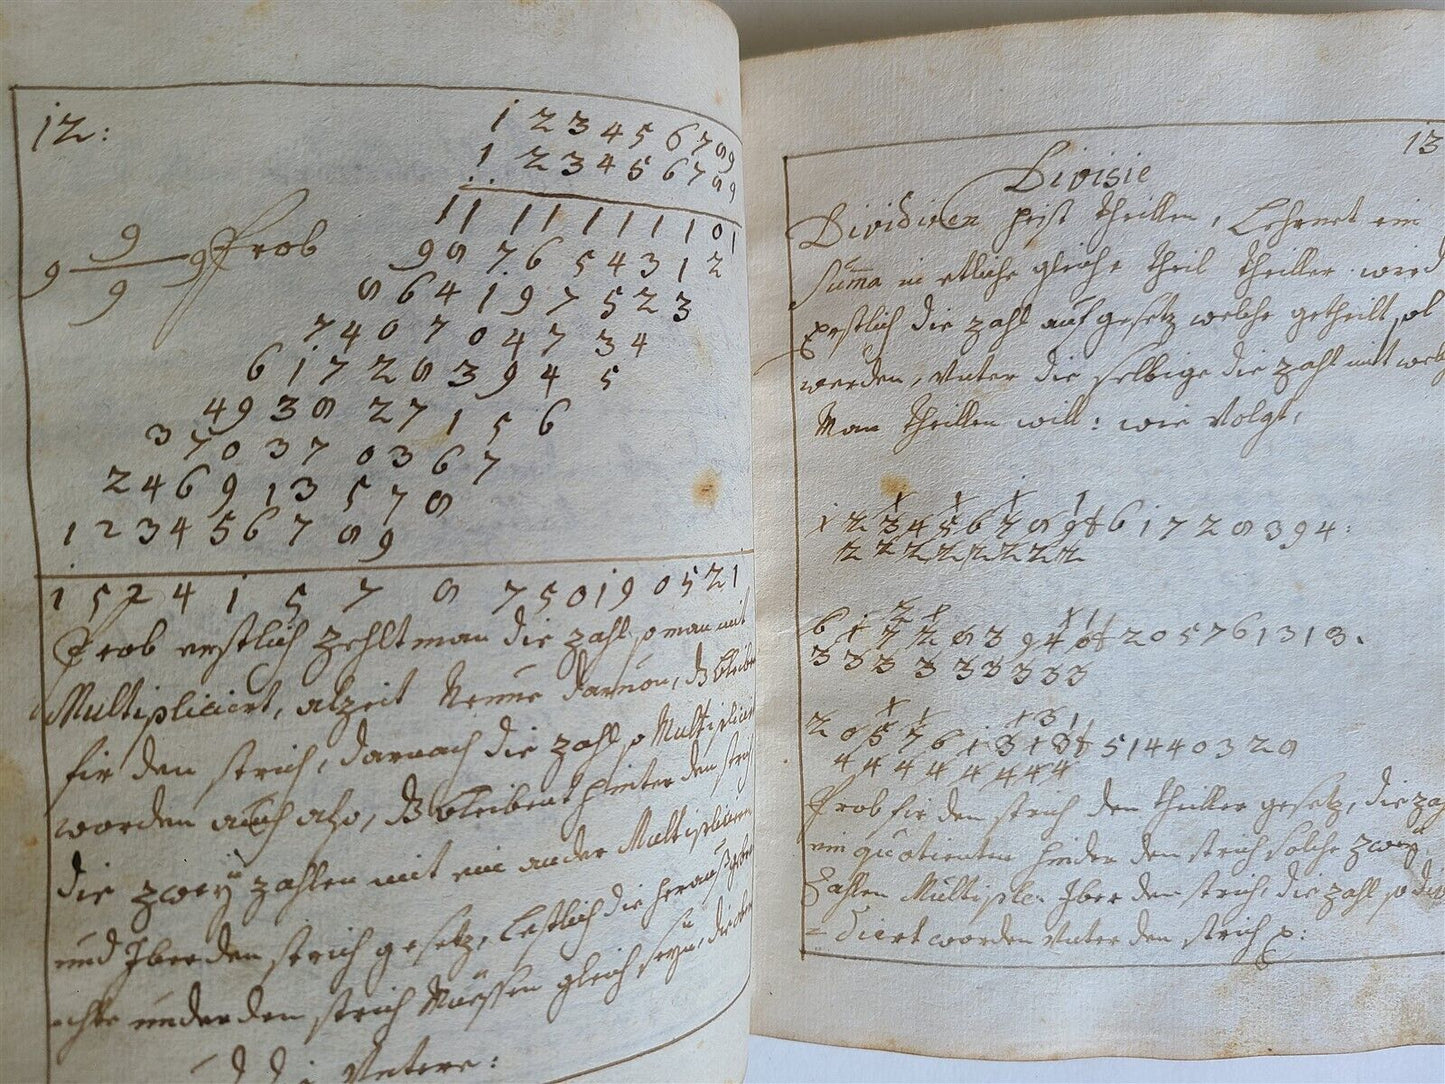 12:
1 2 3 4 5 6 7 8 9
1 2 3 4 5 6 7 8 9
1 1 1 1 1 1 1 1 0 1
9 8 7 6 5 4 3 1 2
8 6 4 1 9 7 5 2 3
7 4 0 7 0 4 7 3 4
6 1 7 2 8 3 9 4 5
4 9 3 8 2 7 1 5 6
3 7 0 3 7 0 3 6 7
2 4 6 9 1 3 5 7 8
1 2 3 4 5 6 7 8 9
1 5 2 4 1 5 7 8 7 5 0 1 9 0 5 2 1
9
9 9 Prob
9
Prob erstlich zehlt man die zahl so man mit
Multipliciert, alzeit Neune daruon, dz bleibt
fir den strich, darnach die zahl so Multipliciert
worden auch also, dz bleibent hinter den strich
die zweÿ zahlen mit ein ander Multiplicieren
und Iber den strich gesetz, Lestlich die herauß
under den strich Müessen gleich seyn, die
Vntere:
13
Divisie
Dividiren heist theillen, Lehrnet ein
Summa in etliche gleiche theil theillen wird
erstlich die zahl auf gesetz welche getheilt sol
werden, Vnter die selbige die zahl mit welch
Man theillen will: wie Volgt,
1 1 1 1
1 2 3 4 5 6 7 8 9 6 1 7 2 8 3 9 4:
2 2 2 2 2 2 2 2
2 1 1 1
6 1 7 2 8 3 9 4 8 2 0 5 7 6 1 3 1 3.
3 3 3 3 3 3 3 3 3
1 1 1 3 1
2 0 5 7 6 1 3 1 3 5 1 4 4 0 3 2 8
4 4 4 4 4 4 4 4
Prob fir den strich den theiller gesetz, die zahl
ein quotienten hinder den strich solche zweÿ
Zahlen Multiple: Iber den strich, die zahl so di
= diert worden Vnter den strich